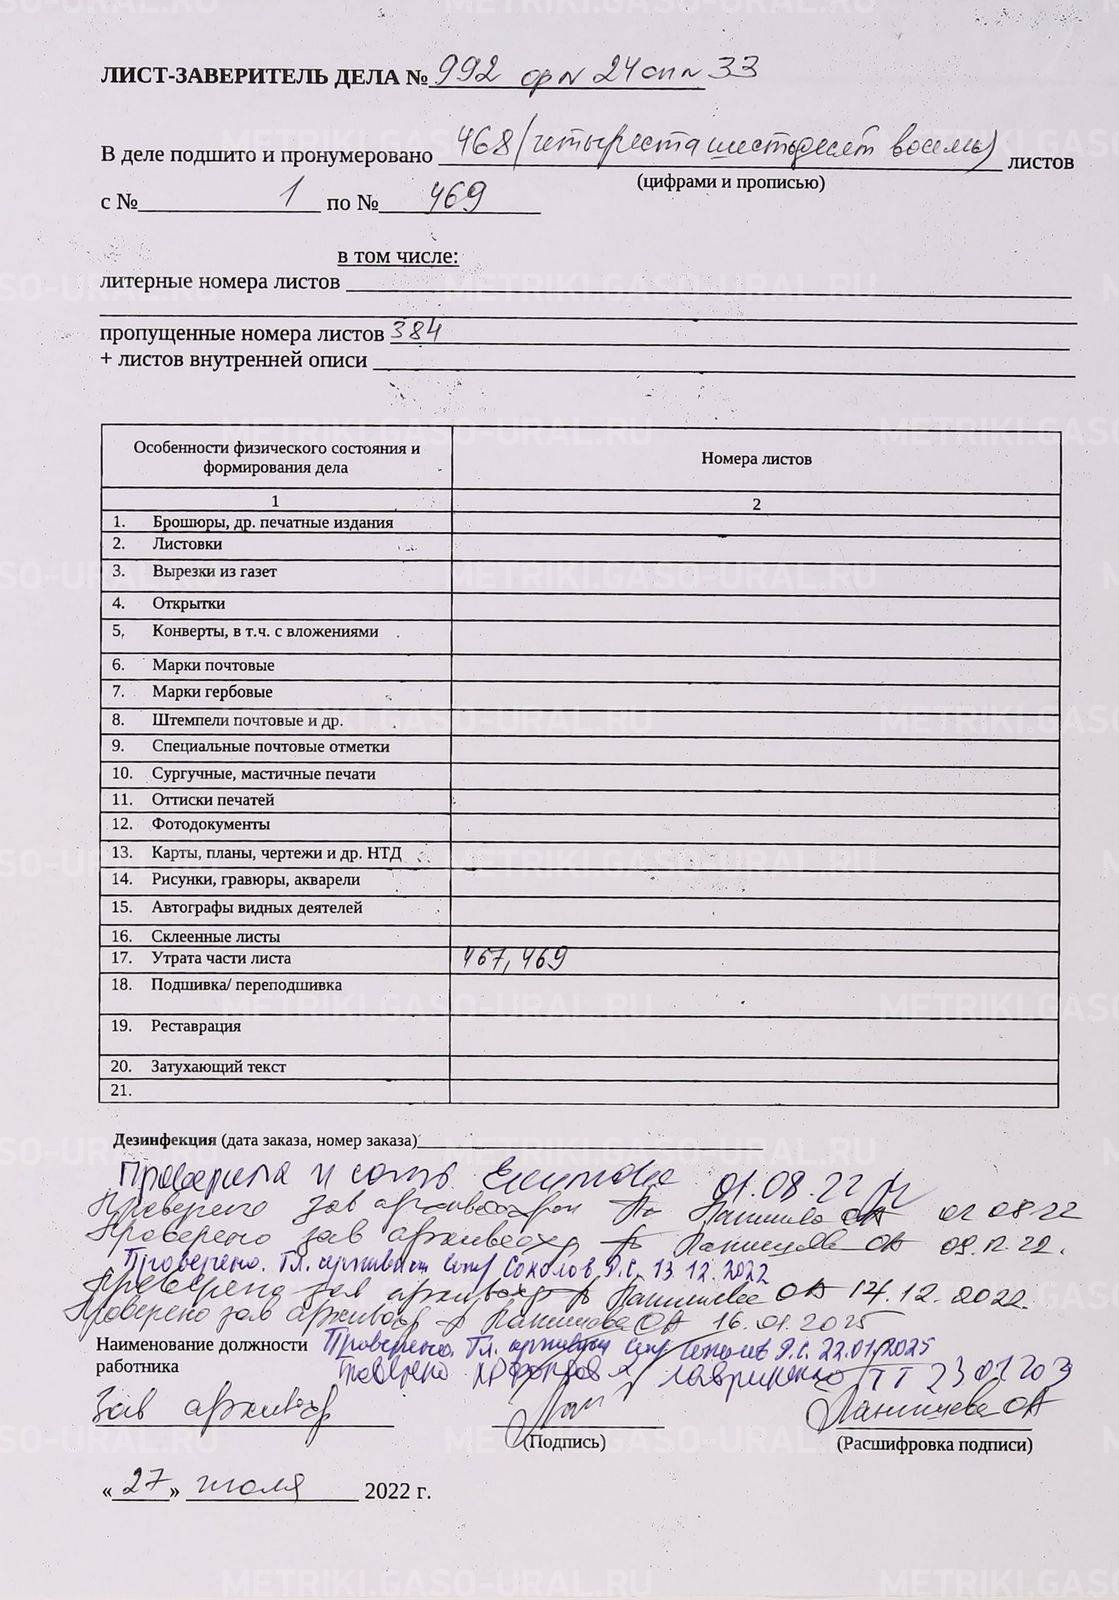 ЛИСТ-ЗАВЕРИТЕЛЬ ДЕЛА № 992 ф N 24 оп N 33
В деле подшито и пронумеровано 468 (четыреста шестьдесят восемь) листов
(цифрами и прописью)
с № 1 по № 469
в том числе:
литерные номера листов
пропущенные номера листов 384
+ листов внутренней описи
Особенности физического состояния и формирования дела Номера листов
1 2
1. Брошюры, др. печатные издания
2. Листовки
3. Вырезки из газет
4. Открытки
5. Конверты, в т.ч. с вложениями
6. Марки почтовые
7. Марки гербовые
8. Штемпели почтовые и др.
9. Специальные почтовые отметки
10. Сургучные, мастичные печати
11. Оттиски печатей
12. Фотодокументы
13. Карты, планы, чертежи и др. НТД
14. Рисунки, гравюры, акварели
15. Автографы видных деятелей
16. Склеенные листы
17. Утрата части листа 467, 469
18. Подшивка/ переподшивка
19. Реставрация
20. Затухающий текст
21.
Дезинфекция (дата заказа, номер заказа)
Проверила 01.08.22
Проверено зав архивохр ОА 02 08 22
Проверено зав архивохр ОА 09.12.22.
Проверено. Гл. архивист Соколов Я.С. 13.12.2022
Проверено зав архивохр ОА 14.12.2022.
Проверено зав архивохр ОА 16.01.2025
Наименование должности Проверено. Гл. архивист Соколов Я.С. 22.01.2025
работника Гавриленко
Зав архивохр
(Подпись) (Расшифровка подписи)
«27» июля 2022 г.
METRIKI.GASO-URAL.RU